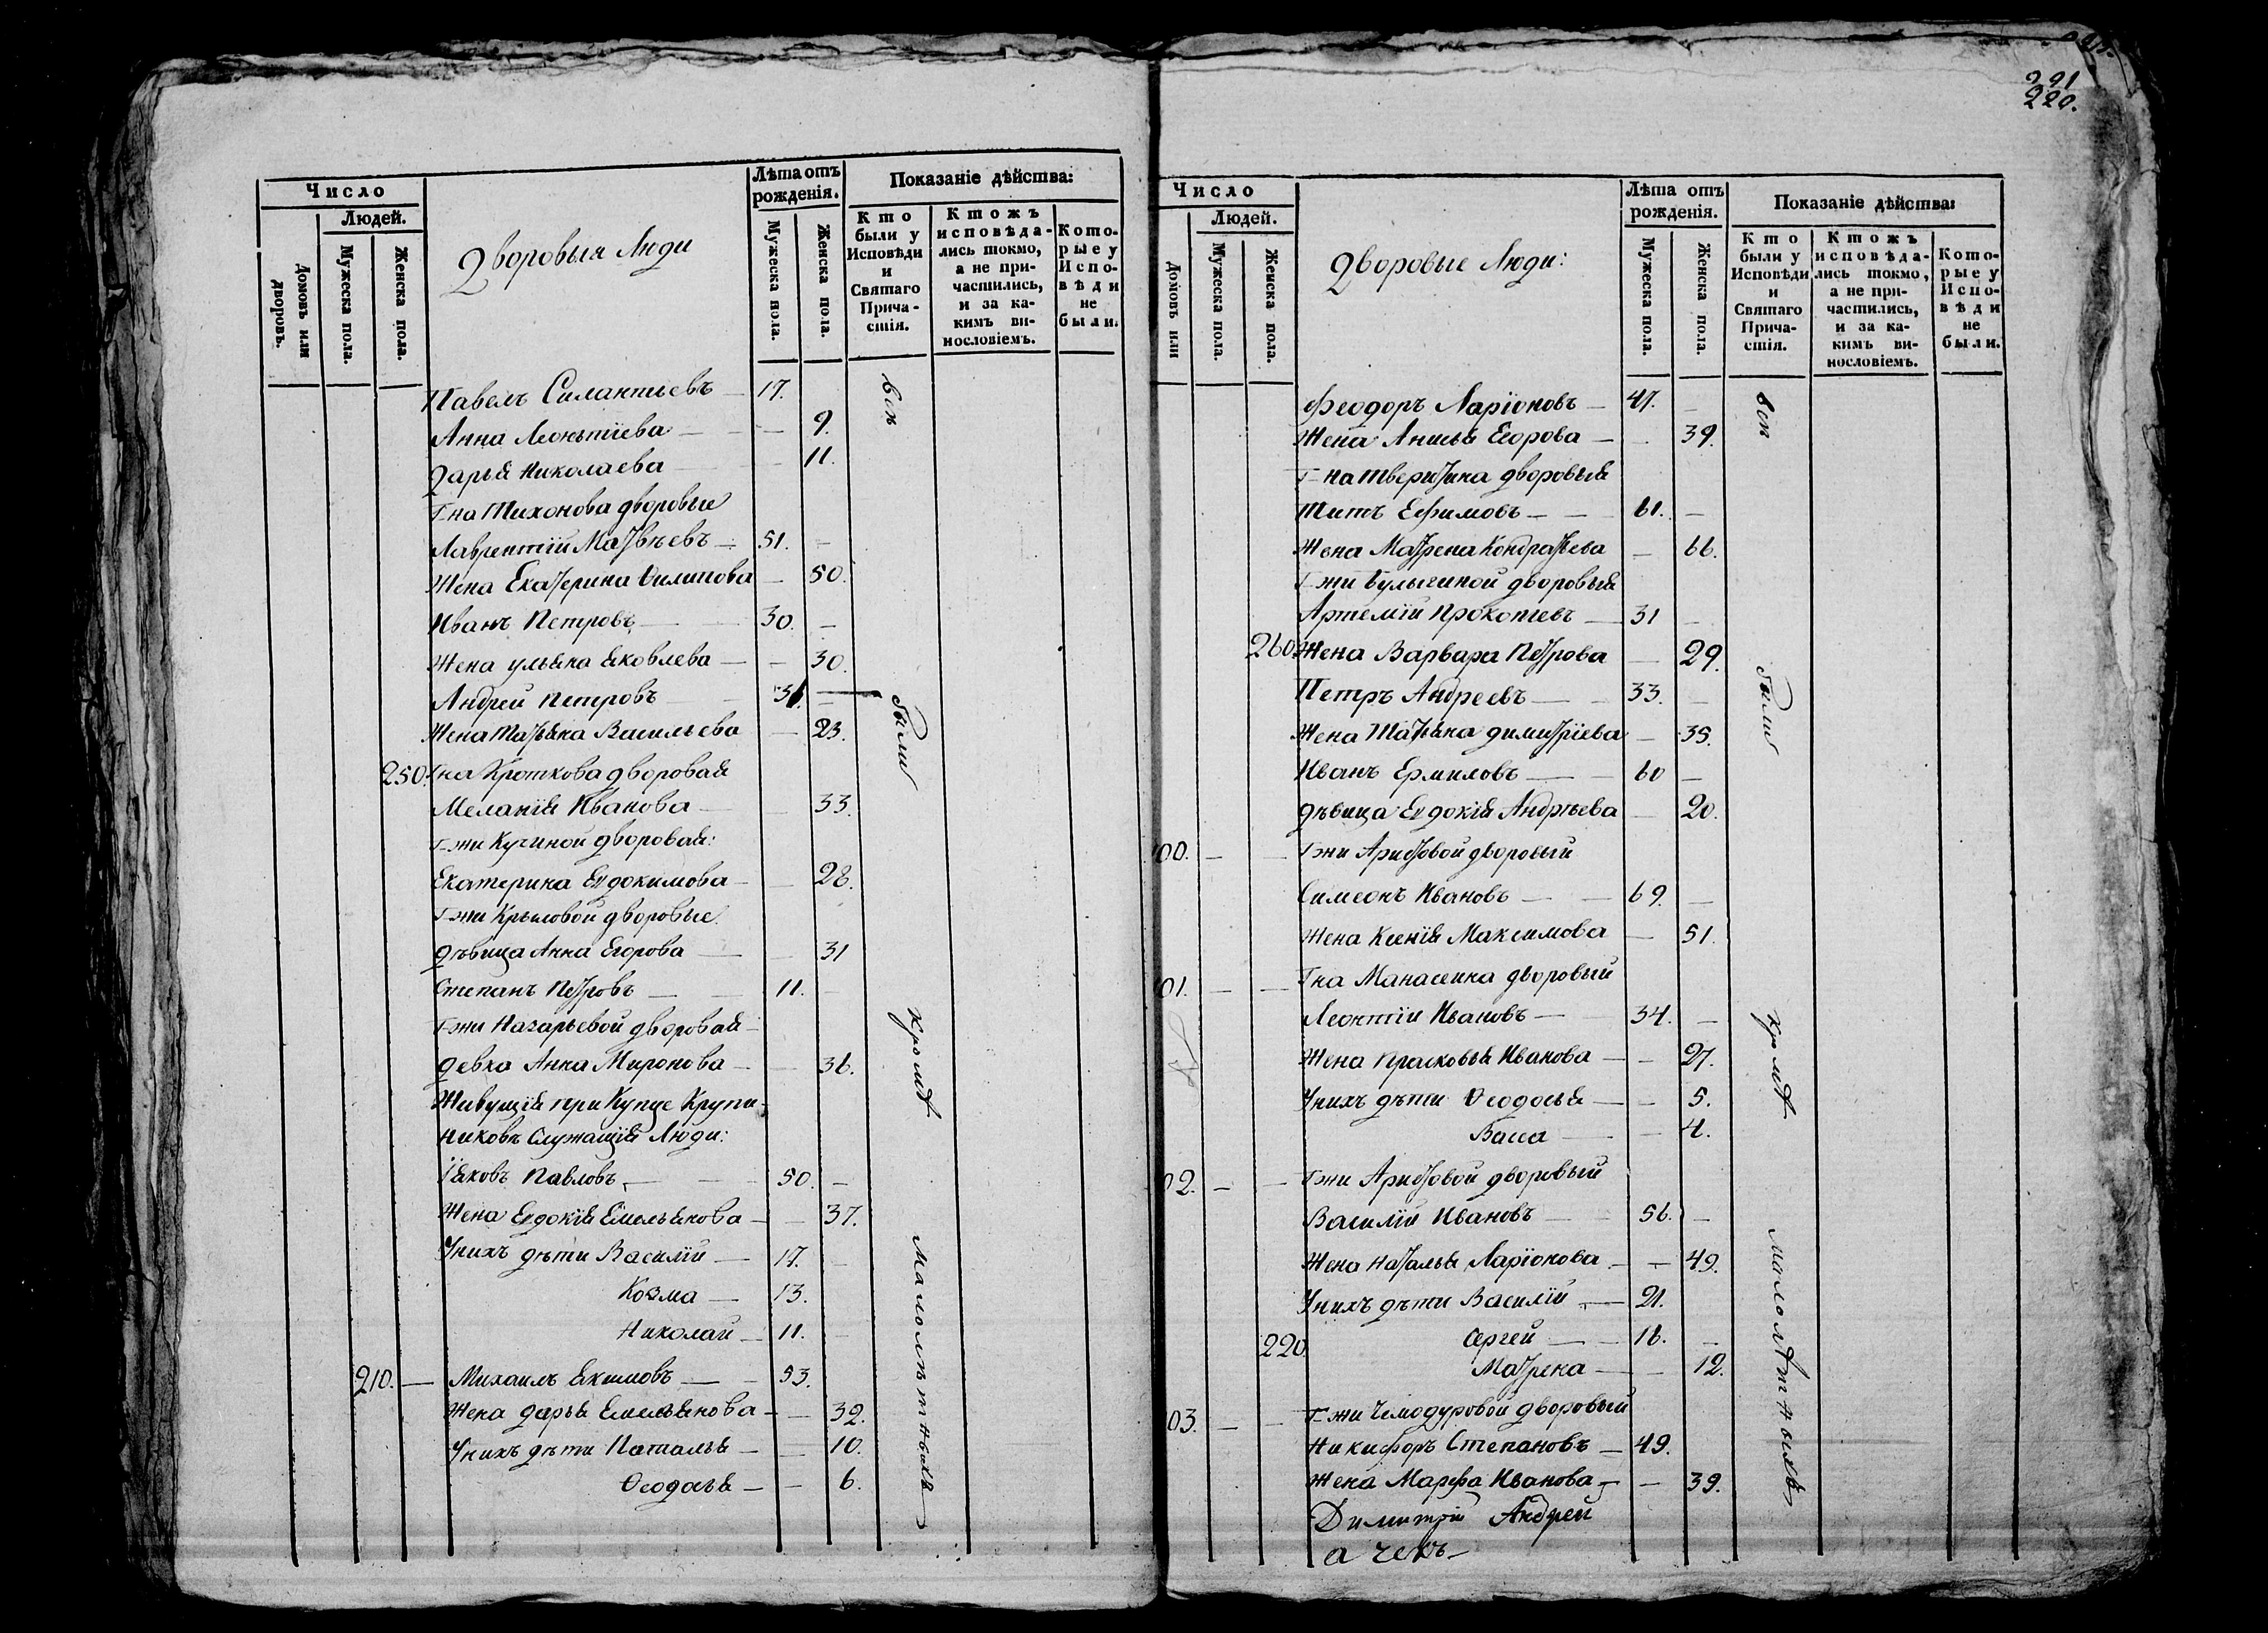 291
220.
Число
Людей.
Домовъ или дворовъ.
Мужеска пола.
Женска пола.
Дворовыя Люди
Лѣта отъ рожденія.
Мужеска пола.
Женска пола.
Показаніе дѣйства:
Кто были у Исповѣди и Святаго Прича-стія.
Ктожъ исповѣда-лись токмо, а не при-частились, и за ка-кимъ ви-нословіемъ.
Кото-рые у Испо-вѣди не были.
Павелъ Силантьевъ — 17.
Анна Леонтіева — — 9.
Дарья Николаева — — 11.
Г-на Тихонова дворовые
Лаврентій Матвѣевъ — 51. —
Жена Екатерина Филипова — 50.
Иванъ Петровъ — 30. —
Жена Ульяна Яковлева — — 30.
Андрей Петровъ — 31. —
Жена Татьяна Васильева — 23.
250. Г-на Кроткова дворовая
Меланія Иванова — — 33.
Г-жи Кучиной дворовая:
Екатерина Евдокимова — — 28.
Г-жи Крыловой дворовые
Дѣвица Анна Егорова — — 31
Степанъ Петровъ — — 11. —
Г-жи Назарьевой дворовая —
Девка Анна Миронова — — 36.
Живущія при Купце Крупе-
никовъ Служащія Люди:
Іяковъ Павловъ — — 50. —
Жена Евдокія Емельянова — — 37.
У нихъ дѣти Василій — 17. —
Козма — 13.
Николай — 11. —
210. — Михаилъ Якимовъ — — 53.
Жена Дарья Емельянова — — 32.
У нихъ дѣти Наталья — — 10.
Ѳеодосья — — 6.
всѣ
были
кромѣ
малолѣтныхъ
Число
Людей.
Домовъ или
Мужеска пола.
Женска пола.
Дворовые Люди:
Лѣта отъ рожденія.
Мужеска пола.
Женска пола.
Показаніе дѣйства:
Кто были у Исповѣди и Святаго Прича-стія.
Ктожъ исповѣда-лись токмо, а не при-частились, и за ка-кимъ ви-нословіемъ.
Кото-рые у Испо-вѣди не были.
Феодоръ Ларіоновъ — 47. —
Жена Анисья Егорова — — 39.
Г-на Тверитина дворовыя
Титъ Ефимовъ — — 61. —
Жена Матрена Кондратьева — 66.
Г-жи Булыгиной дворовыя
Артемій Прокопіевъ — 31 —
260. Жена Варвара Петрова — 29.
Петръ Андреевъ — 33. —
Жена Татьяна Димитріева — 35.
Иванъ Ермиловъ — — 60 —
Дѣвица Евдокія Андрѣева — 20.
00. — — Г-жи Аристовой дворовый
Симеонъ Ивановъ — — 69. —
Жена Ксенія Максимова — 51.
01. — — Г-на Манасеина дворовый
Леонтій Ивановъ — 34. —
Жена Прасковья Иванова — — 27.
У нихъ дѣти Ѳеодосья — — 5.
Васса — — 4.
02. — — Г-жи Аристовой дворовый
Василій Ивановъ — — 56. —
Жена Наталья Ларіонова — — 49.
У нихъ дѣти Василій — 21.
220. Сергей — — 16. —
Матрена — — 12.
03. — — Г-жи Чемодуровой дворовый
Никифоръ Степановъ — 49.
Жена Марфа Иванова — — 39.
Димитрій Андрей
всѣ
были
кромѣ
малолѣтныхъ